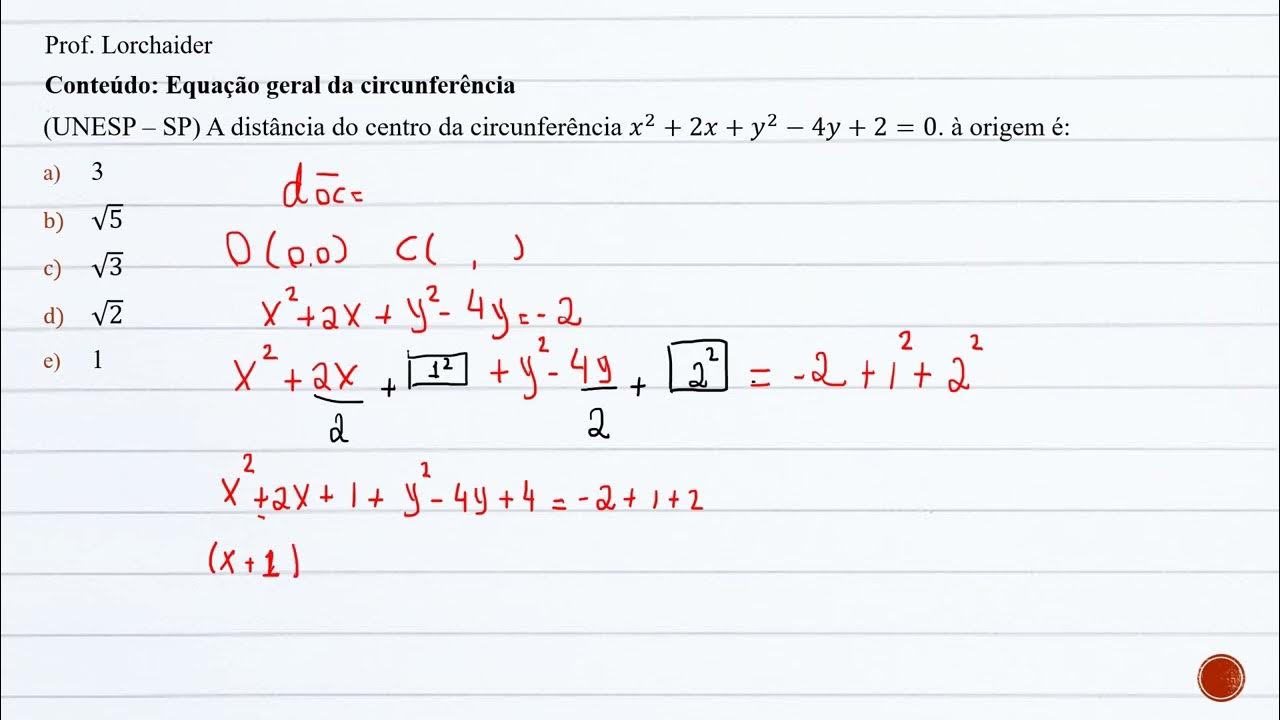 Prof. Lorchaider
Conteúdo: Equação geral da circunferência
(UNESP – SP) A distância do centro da circunferência x² + 2x + y² − 4y + 2 = 0. à origem é:
a) 3
b) √5
c) √3
d) √2
e) 1
d o̅c̅ =
O (0,0) C( , )
x² + 2x + y² - 4y = -2
x² + 2x/2 + 1² + y² - 4y/2 + 2² = -2 + 1² + 2²
x² + 2x + 1 + y² - 4y + 4 = -2 + 1 + 2
(x + 1)